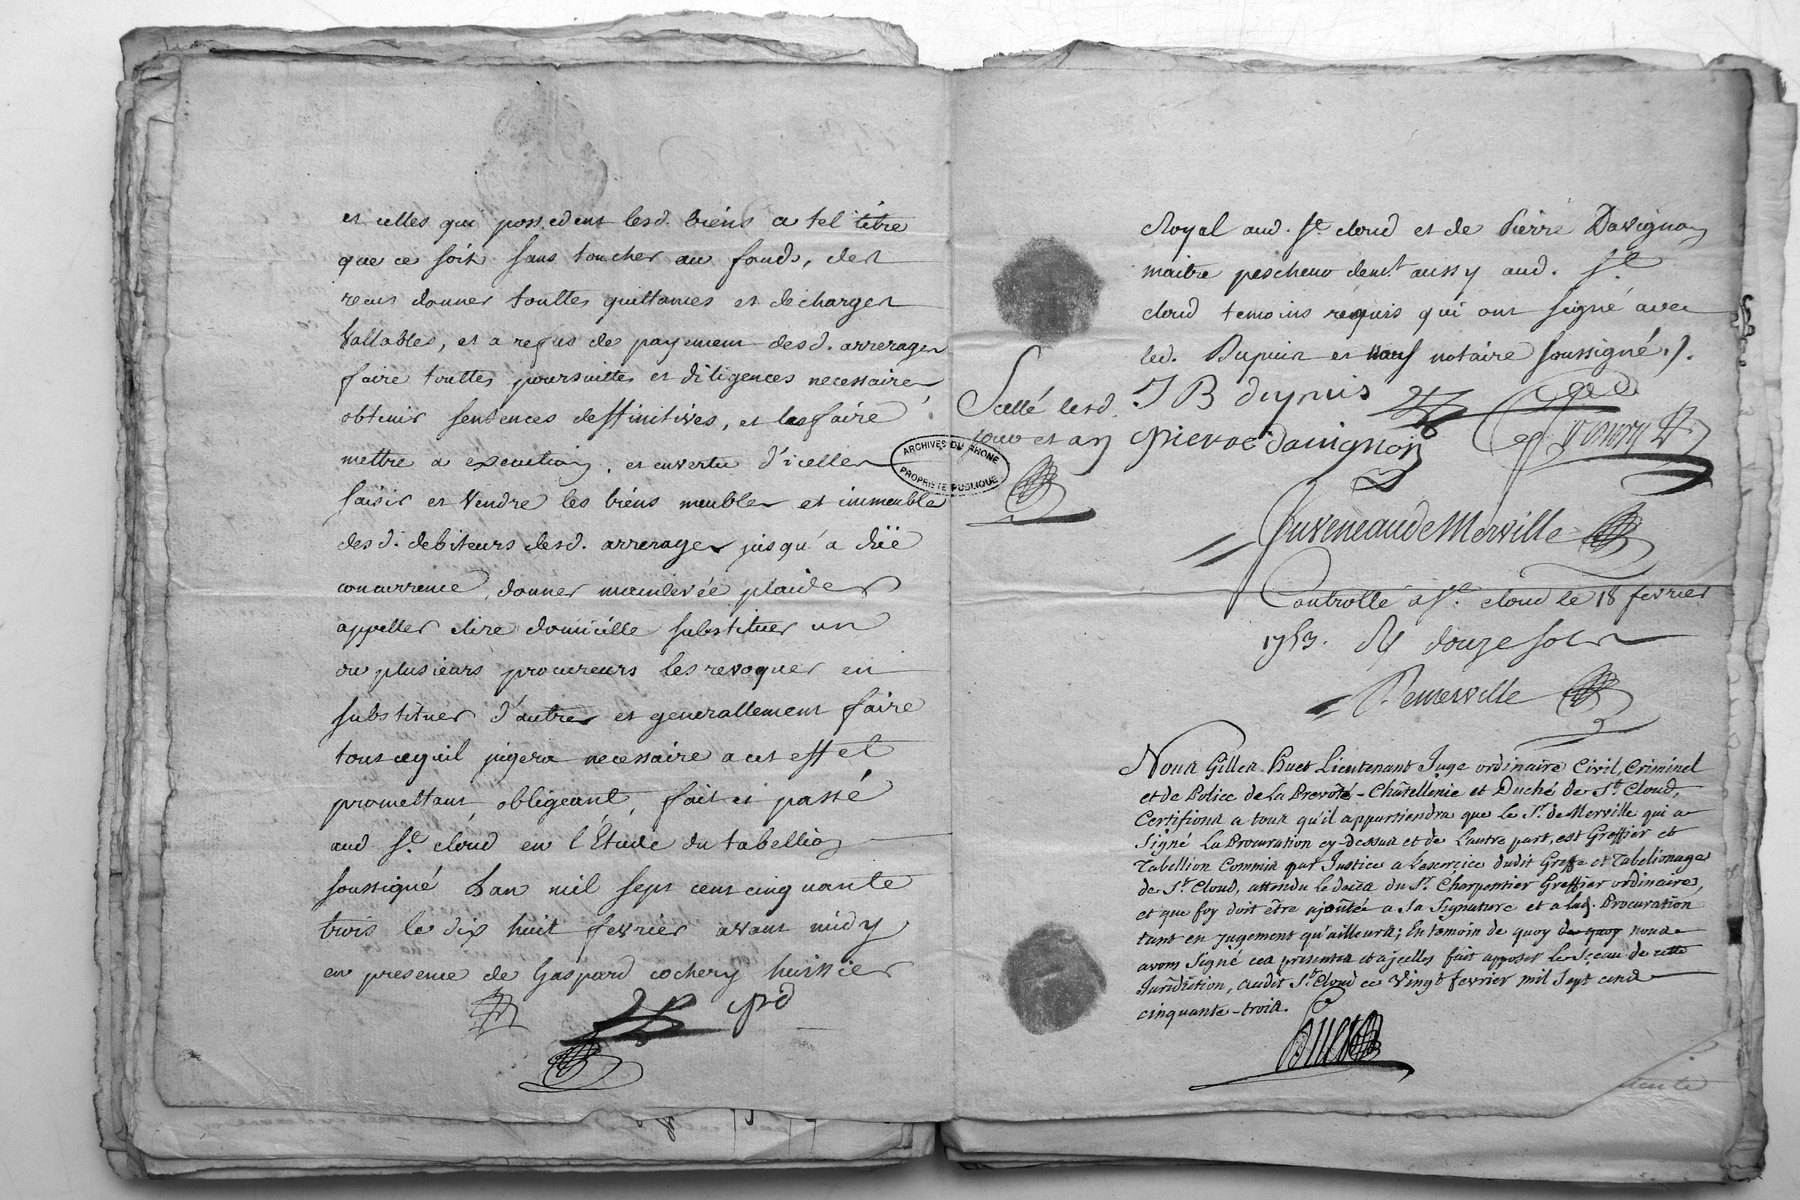 et celles qui possedent lesd. biens a tel titre
que ce soit sans toucher au fonds, du
recus donner touttes quittances et decharges
Vallables, et a refus de payement desd. arrerages
faire touttes poursuittes et diligences necessaires
obtenir sentences deffinitives, et les faire
mettre a execution, et en vertu d'icelles
saisir et vendre les biens meubles et immeubles
desd. debiteurs desd. arrerages jusqu'a düe
concurrence, donner mainlevée plaider
appeller elire domicille substituer un
ou plusieurs procureurs les revoquer en
substituer d'autres et generallement faire
tout ce qu'il jugera necessaire a cet effet
promettant obligeant, fait et passé
aud. St. cloud en l'Etude du tabellion
soussigné L'an mil sept cent cinquante
trois le dix huit fevrier avant midy
en presence de Gaspard cochery huissier
pd
ARCHIVES DU RHONE
PROPRIETE PUBLIQUE
Royal aud. St. cloud et de Pierre Davignon
maitre pescheur demt. aussy aud. St.
cloud temoins requis qui ont signé avec
led. Dupuis et nous notaire soussigné ./.
Scellé lesd.
jour et an
J B dupuis
pieroe dauignon
Juveneau de Merville
Controllé a St. cloud le 18 fevrier
1753. R douze sols
Demerville
Nous Gilles Huet Lieutenant Juge ordinaire Civil, Criminel
et de Police de La Prevôté-Chatellenie et Duché de St. Cloud,
Certifions a tous qu'il appartiendra que le Sr. de Merville qui a
Signé La Procuration cy-dessus et de L'autre part, est Greffier et
Tabellion Commis par Justice a L'exercice dudit Greffe et Tabelionage
de St. Cloud, attendu le deces du Sr. Charpentier Greffier ordinaire,
et que foy doit être ajoûtée a sa Signature et a lad. Procuration
tant en jugement qu'ailleurs; En temoin de quoy de quoy nous
avons Signé ces presentes et a jcelles fait apposer le Sceau de cette
Juridiction, audit St. Cloud ce Vingt fevrier mil Sept cens
cinquante-trois.
Huet